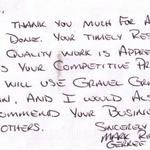 THANK YOU MUCH FOR A
DONE. YOUR TIMELY RES
QUALITY WORK IS APPRE
S YOUR COMPETITIVE PR
WILL USE GRAVEL GR
N, AND I WOULD AL
COMMEND YOUR BUSIN
OTHERS. SINCERELY
MARK R